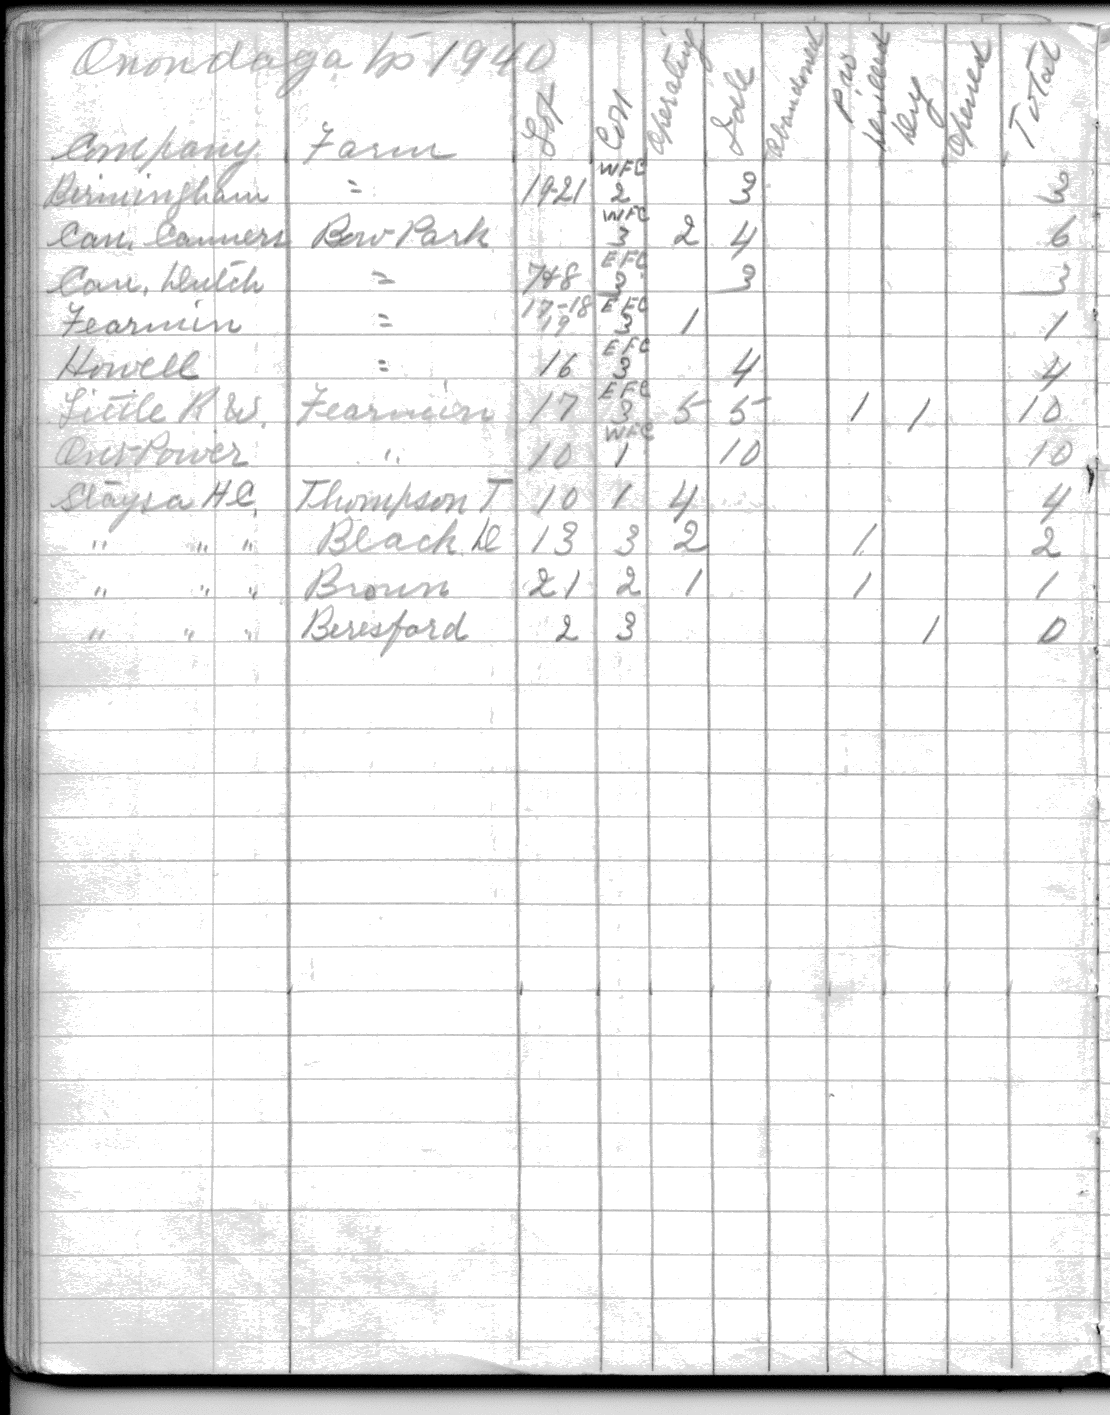 Onondaga to 1940
Company Farm Lot Con Operating Idle Abandoned P.W. Drilled Dry Opened Total
Birmingham = 19-21 WFC 2 3 3
Can. Canners Bow Park WFC 3 2 4 6
Can. Dutch = 7+8 EFC 3 3 3
Fearmin = 17-18 19 EFC 3 1 1
Howell = 16 EFC 3 4 4
Little R W. Fearmin 17 EFC 3 5 5 1 1 10
Ont Power " 10 WFC 1 10 10
Slaysa H C. Thompson T 10 1 4 4
" " " Beach D 13 3 2 1 2
" " " Brown 21 2 1 1 1
" " " Beresford 2 3 1 0